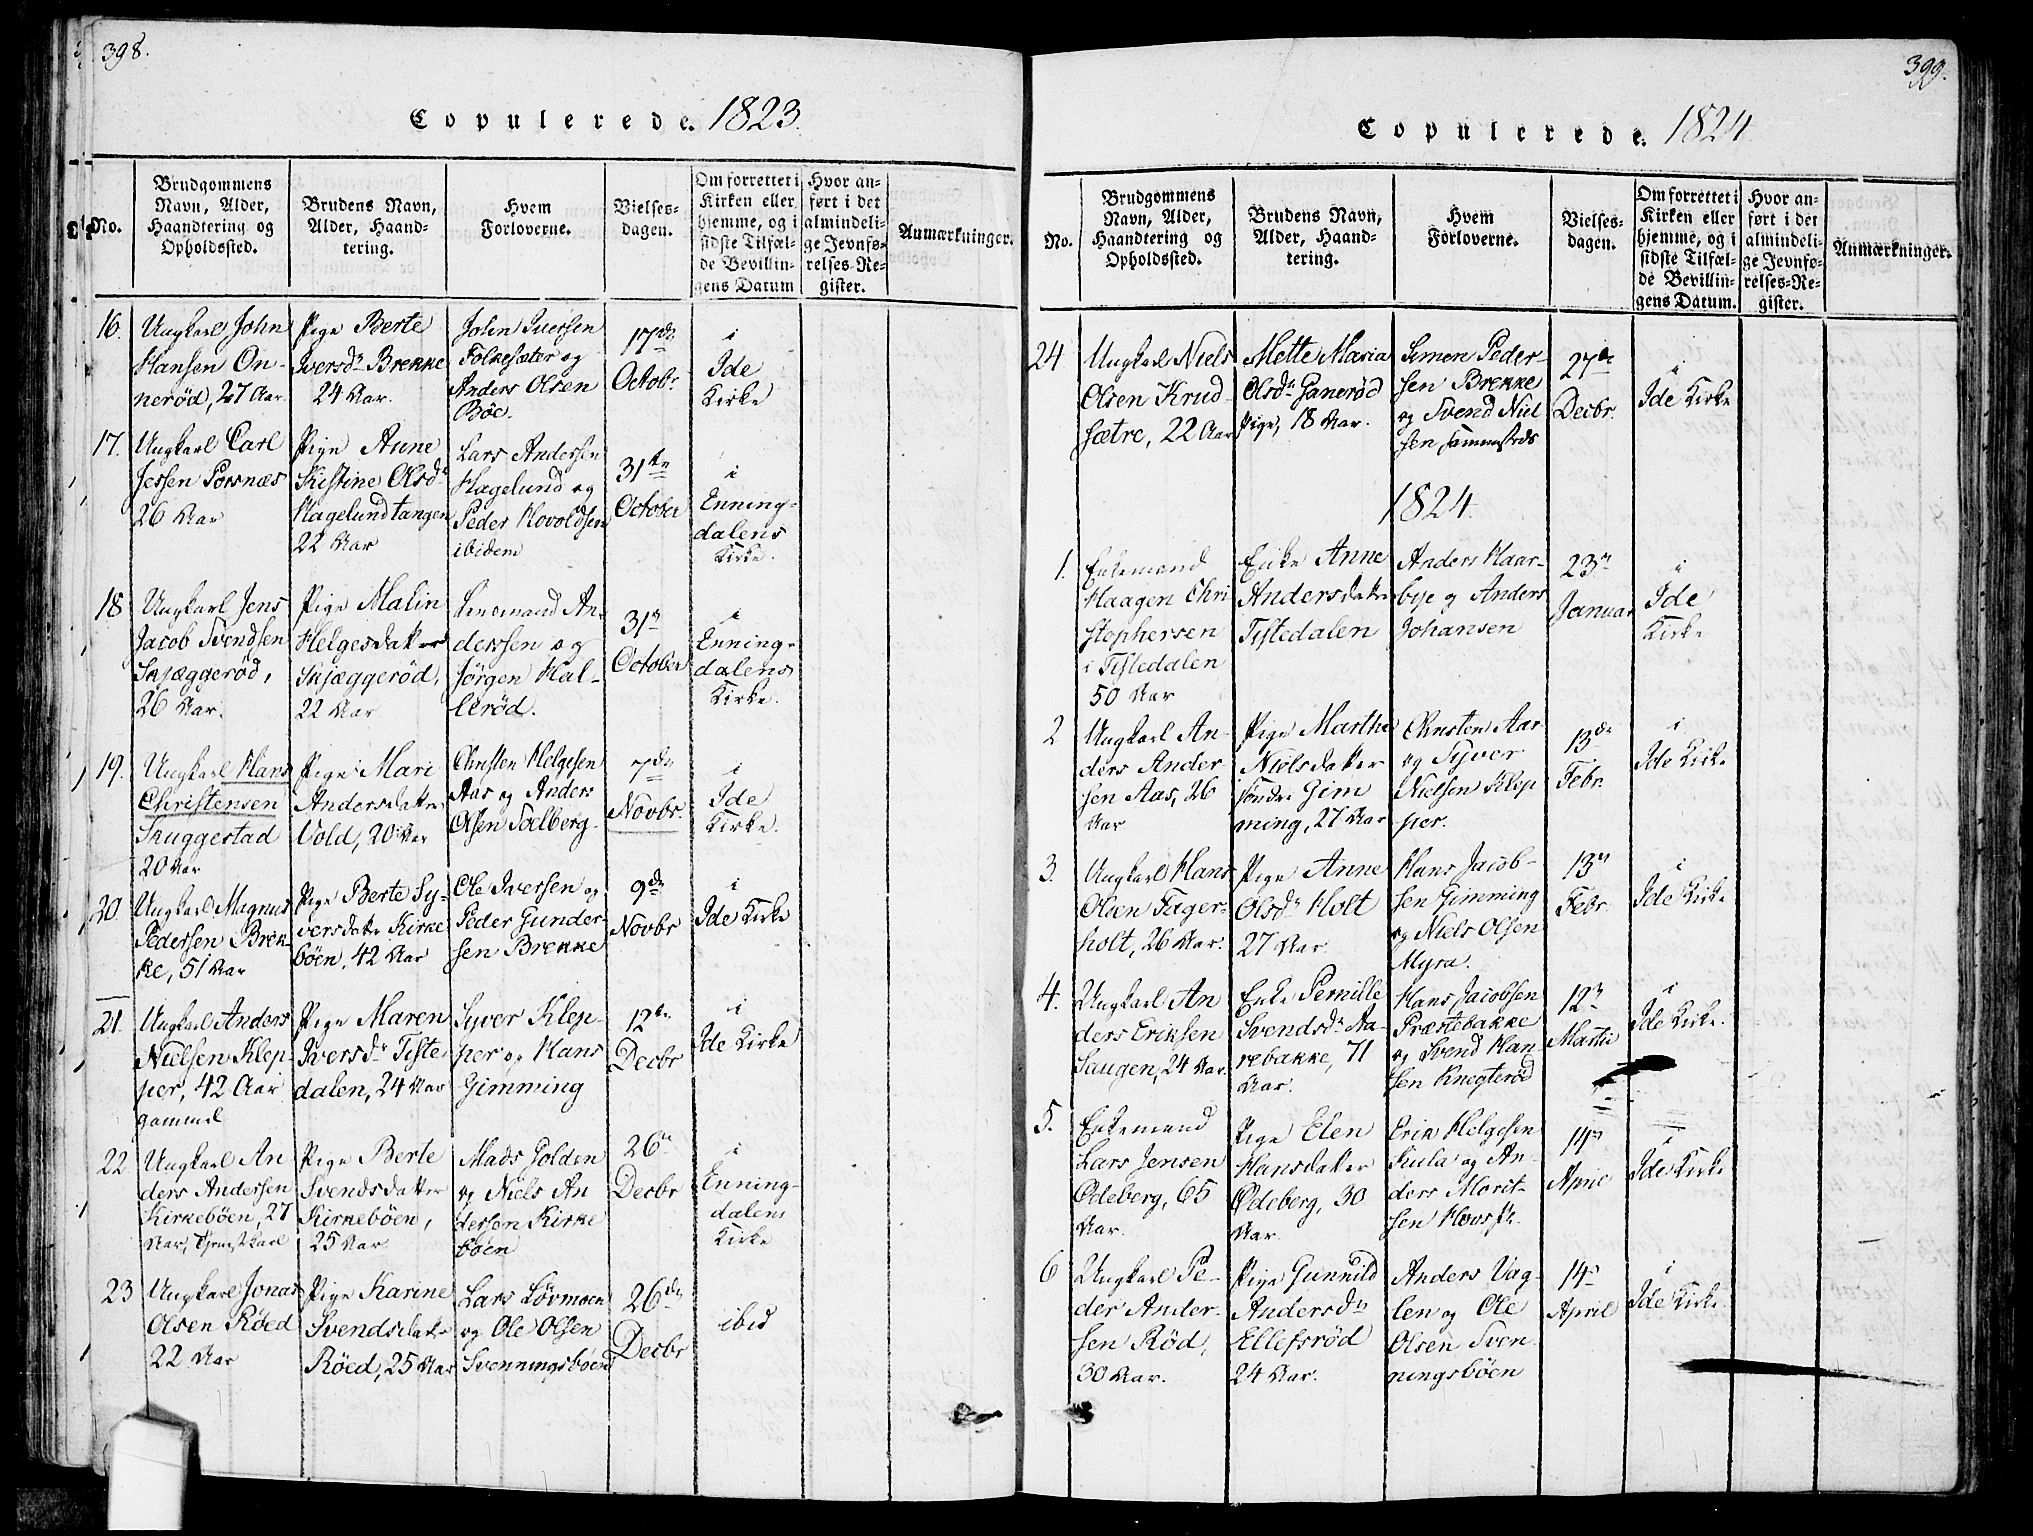 398.
Copulerede. 1823.
No.
Brudgommens
Navn, Alder,
Haandtering og
Opholdssted.
Brudens Navn,
Alder, Haand-
tering.
Hvem
Forloverne.
Vielses-
dagen.
Om forrettet i
Kirken eller
hjemme, og i
sidste Tilfæl-
de Bevillin-
gens Datum
Hvor an-
ført i det
almindeli-
ge Jevnfø-
relses-Re-
gister.
Anmærkninger.
16.
Ungkarl John
Hansen On-
nerød, 27 Aar.
Pige Berte
Iversdr Brekke
24 Aar.
John Iversen
Folkesæter og
Anders Olsen
Böe.
17de
Octobr
i
Ide
Kirke
17.
Ungkarl Carl
Jessen Porsnæs
26 Aar
Pige Anne
Kistine Olsdr
Hagelundtangen
22 Aar
Lars Andersen
Hagelund og
Peder Hovoldsen
ibidem
31te
October
i
Enning-
dalens
Kirke.
18
Ungkarl Jens
Jacob Svendsen
Skjæggerød,
26 Aar.
Pige Malin
Helgesdatter
Skjæggerød,
22 Aar
Lensmand An-
derssen og
Jørgen Hal-
lerød.
31te
October
i
Enning-
dalens
Kirke.
19.
Ungkarl Hans
Christensen
Skuggestad
20 Aar
Pige Mari
Andersdatter
Vold, 20 Aar
Christen Helgesen
Aas og Anders
Olsen Soelberg.
7de
Novbr.
i
Ide
Kirke.
20.
Ungkarl Magnus
Pedersen Brek-
ke, 51 Aar
Pige Berte Sy-
versdatter Kirke
böen, 42 Aar
Ole Iversen og
Peder Gunder-
sen Brekke
9de
Novbr
i
Ide Kirke
21.
Ungkarl Anders
Nielsen Klep-
per, 42 Aar
gammel
Pige Maren
Iversdr Tiste
dalen, 24 Aar
Syver Klep-
per og Hans
Gimming
12te
Decbr
i
Ide Kirke
22
Ungkarl An
ders Andersen
Kirkebøen, 27
Aar, Tjenestkarl
Pige Berte
Svendsdatter
Kirkebøen,
25 Aar
Mads Golden
og Niels An
dersen Kirke
bøen
26de
Decbr
i
Enning-
dalens
Kirke
23
Ungkarl Jonas
Olsen Röed
22 Aar
Pige Karine
Svendsdatter
Röed, 25 Aar
Lars Lövmoen
og Ole Olsen
Svenningsbøen
26de
Decbr
ibid
399.
Copulerede. 1824.
No.
Brudgommens
Navn, Alder,
Haandtering og
Opholdssted.
Brudens Navn,
Alder, Haand-
tering.
Hvem
Forloverne.
Vielses-
dagen.
Om forrettet i
Kirken eller
hjemme, og i
sidste Tilfæl-
de Bevillin-
gens Datum.
Hvor an-
ført i det
almindeli-
ge Jevnfø-
relses-Re-
gister.
Anmærkninger.
24
Ungkarl Niels
Olsen Krud-
sætre, 22 Aar
Mette Maria
Olsdr Ganerød
Pige, 18 Aar.
Simen Peder-
sen Brekke
og Svend Niel
sen sammesteds
27de
Decbr.
i
Ide Kirke
1824.
1.
Enkemand
Haagen Chri
stophersen
i Tistedalen
50 Aar
Enke Anne
Andersdatter
Tistedalen
Anders Haar-
bye og Anders
Johansen
23de
Januar
i
Ide
Kirke
2
Ungkarl An-
ders Ander
sen Aas, 26
Aar
Pige Marthe
Nielsdatter
søndre Gim
ming, 27 Aar
Christen Aas
og Syver
Nielsen Klep
per.
13de
Febr.
i
Ide Kirke
3.
Ungkarl Hans
Olsen Fager-
holt, 26 Aar.
Pige Anne
Olsdr Holt
27 Aar
Hans Jacob-
sen Gimming
og Niels Olsen
Myra.
13de
Febr.
i
Ide Kirke
4.
Ungkarl An
ders Eriksen
Saugen, 24 Aar.
Enke Pernille
Svendsdr Aa-
rebakke, 71
Aar.
Hans Jacobsen
Præstebakke
og Svend Han
sen Knegterød
12te
Martii
i
Ide Kirke.
5.
Enkemand
Lars Jensen
Ødeberg, 65
Aar.
Pige Elen
Hansdatter
Ødeberg, 30
Aar.
Erik Helgesen
Kula og An-
ders Morit-
sen
14de
April
i
Ide Kirke
6
Ungkarl Pe-
der Ander-
sen Rød,
30 Aar.
Pige Gunnild
Andersdr
Ellefsrød
24 Aar.
Anders Vag-
len og Ole
Olsen Sven
ningsbøen
14de
April
i
Ide Kirke.